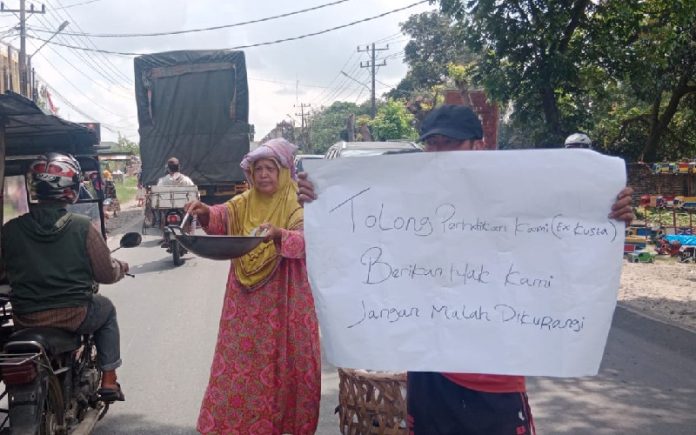 ToLong Perhatikan Kami (Ex Kusta)
Berikan Hak Kami
Jangan Malah Dikurangi